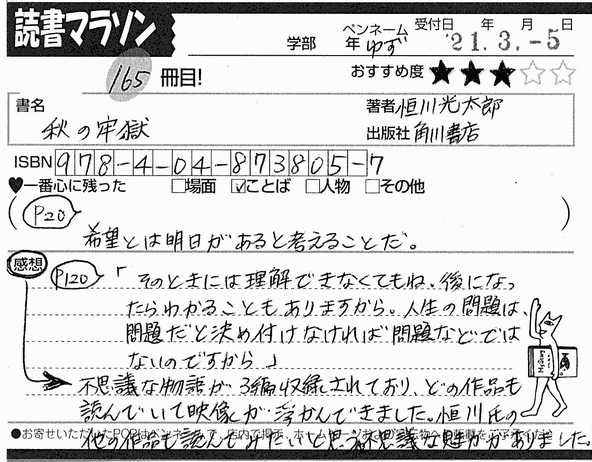 読書マラソン
学部 年 ペンネーム ゆず 受付日 年 月 日 '21.3.-5
165 冊目! おすすめ度 ★★★☆☆
書名 著者 恒川光太郎
秋の牢獄 出版社 角川書店
ISBN 978-4-04-873805-7
♥一番心に残った □場面 ☑ことば □人物 □その他
(P20)
希望とは明日があると考えることだ。
感想
P120 「そのときには理解できなくてもね。後になっ
たらわかることもありますから。人生の問題は、
問題だと決め付けなければ問題などでは
ないのですから」
不思議な物語が3編収録されており、どの作品も
読んでいて映像が浮かんできました。恒川氏の
他の作品も読んでみたいと思う不思議な魅力がありました。
●お寄せいただいたPOPはペンネームで、店内で掲示、ホームページ